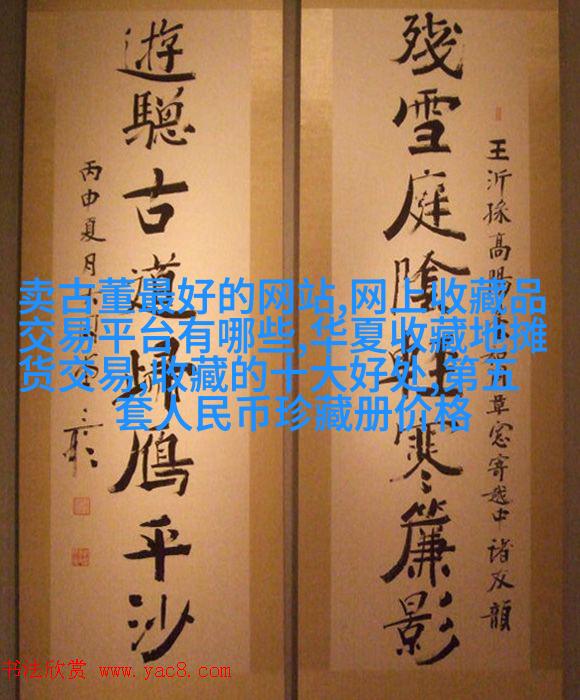 殘雪庭陰輕寒簾影
王沂孫高陽 草窓寄越中諸友韻
遊驄古道歸鴈平沙
丙申夏月
卖古董最好的网站,网上收藏品
交易平台有哪些,华夏收藏地摊
货交易,收藏的十大好处,第五
套人民币珍藏册价格
书法欣赏 www.yac8.com